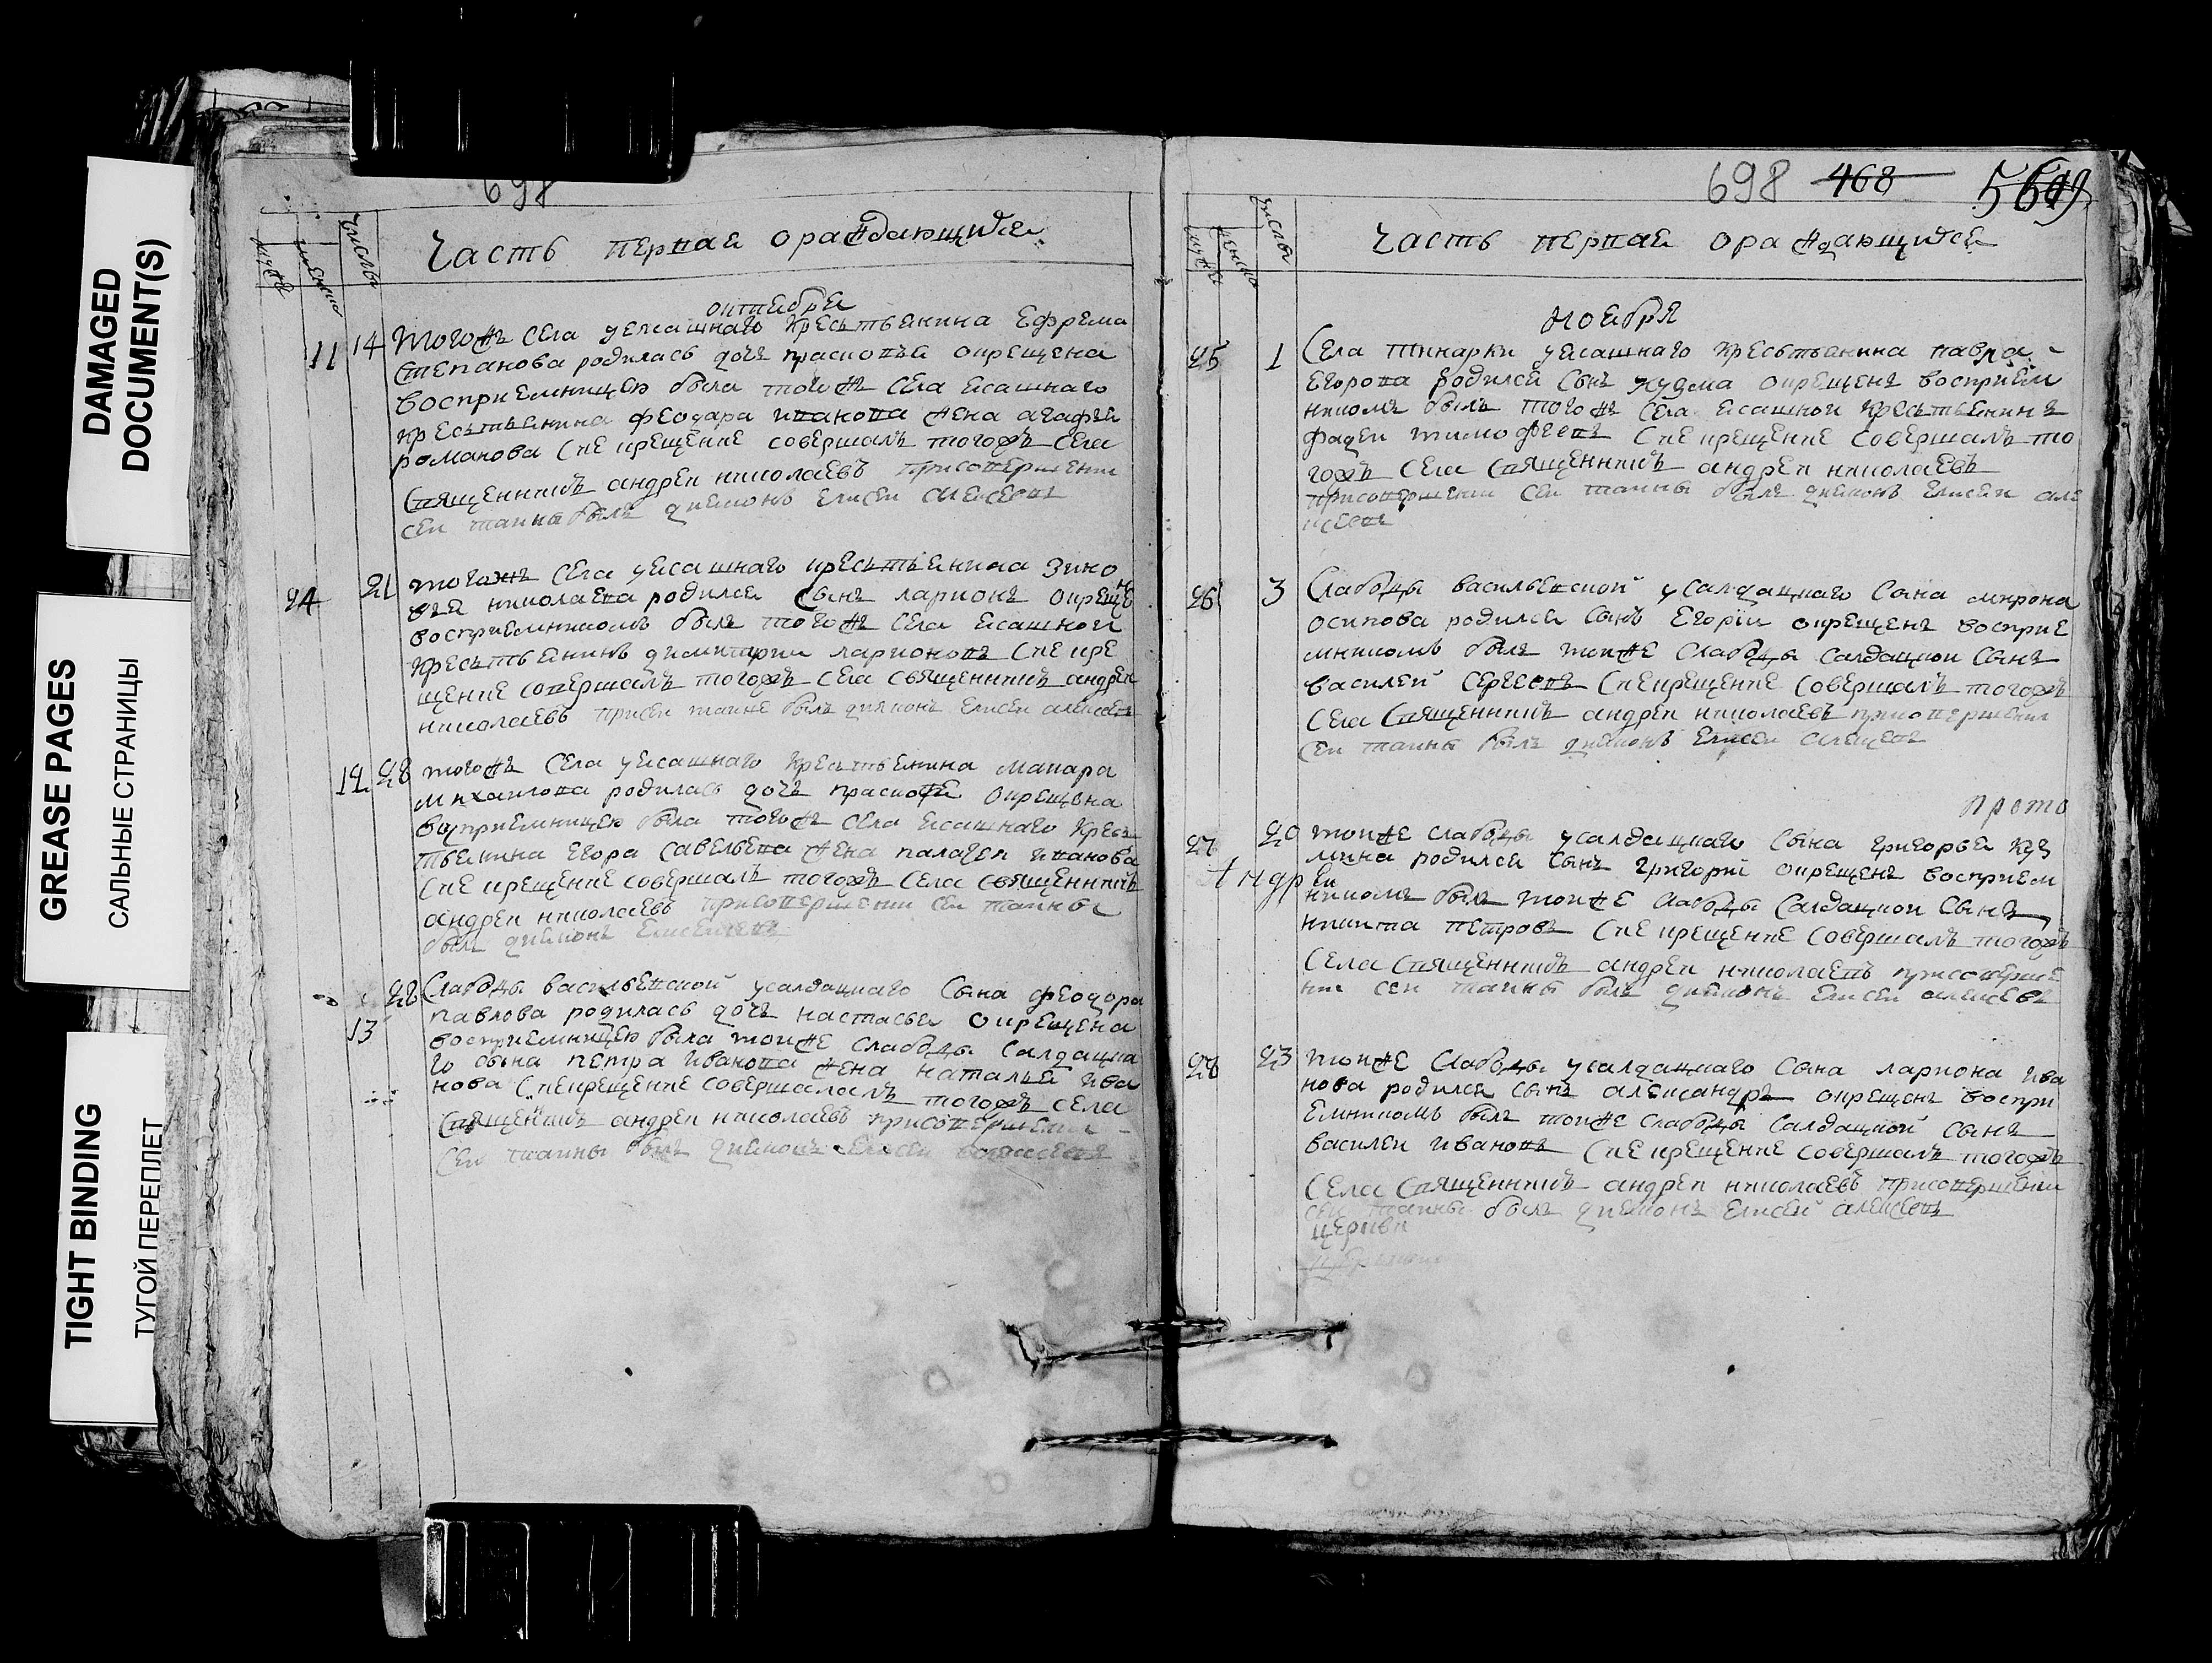 DAMAGED
DOCUMENT(S)
GREASE PAGES
САЛЬНЫЕ СТРАНИЦЫ
TIGHT BINDING
ТУГОЙ ПЕРЕПЛЕТ
698
числы
женско
мужеск
Часть первая ораждающихся
октября
11 14 тогожъ села уясашнаго крестьянина Ефрема
Степанова родилась дочь прасковья окрещена
восприемницею была тогожъ села ясашнаго
крестьянина феодара иванова жена агафья
романова Сие крещение совершалъ тогожъ села
Священникъ андреи николаевъ присовершени
сеи таины былъ дияконъ Елисеи алексеевъ
24 21 тогожъ села уясашнаго крестьянина Зино
вья николаева родился Сынъ ларионъ окрещенъ
восприемникомъ былъ тогожъ села ясашнои
крестьянинъ димитри ларионовъ Сие кре
щение совершалъ тогожъ села священникъ андреи
николаевъ присеи таине былъ дияконъ Елисеи алексеевъ
12 28 тогожъ села уясашнаго крестьянина макара
михаилова родилась дочь прасковья окрещена
восприемницею была тогожъ села ясашнаго кресь
тьянина Егора савельева жена палагея иванова
Сие крещение совершалъ тогожъ села священникъ
андреи николаевъ присовершении сеи таины
былъ дияконъ
13 28 Слабоды васильевской усалдацкаго Сына феодора
павлова родилась дочь настасья окрещена
восприемницею была тоиже слабоды Салдацка
го сына петра иванова жена наталья ива
нова Сие крещение совершалъ тогожъ села
Священникъ андреи николаевъ присовершении
сеи таины былъ дияконъ Елисеи алексеевъ
698 468
числы
женско
мужеск
Часть первая ораждающихся
ноября
25 1 Села тинарки уясашнаго крестьянина павла
Егорова родился Сынъ кузма окрещенъ восприем
никомъ былъ тогожъ села ясашнои крестьянинъ
фадеи тимофеевъ Сие крещение совершалъ то
гожъ села Священникъ андреи николаевъ
присовершении сеи таины былъ дияконъ Елисеи але
ксеевъ
26 3 Слабоды васильевской усалдацкаго Сына мирона
осипова родился сынъ Егорiи окрещенъ восприе
мникомъ былъ тоиже слабоды салдацкои Сынъ
василей сергеевъ Сие крещение совершалъ тогожъ
села Священникъ андреи николаевъ присовершении
сеи таины былъ дияконъ Елисеи алексеевъ
прото
27 20 тоиже слабоды усалдацкаго Сына григорья куз
мина родился Сынъ григорiи окрещенъ восприем
андреи
никомъ былъ тоиже слабоды Салдацкои Сынъ
никита петровъ Сие крещение совершалъ тогожъ
села Священникъ андреи николаевъ присоверше
нии сеи таины былъ дияконъ Елисеи алексеевъ
28 23 тоиже слабоды усалдацкаго Сына лариона ива
нова родился Сынъ александръ окрещенъ воспри
емникомъ былъ тоиже слабоды Салдацкой Сынъ
василеи ивановъ Сие крещение совершалъ тогожъ
села Священникъ андреи николаевъ присовершении
сеи таины былъ дияконъ Елисей алексеевъ
церкви